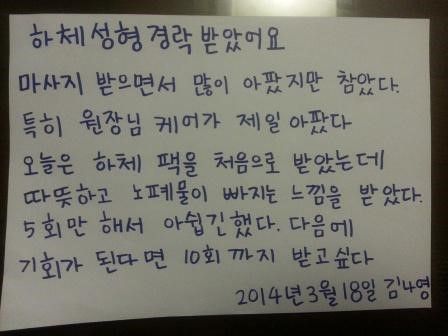 하체성형경락 받았어요
마사지 받으면서 많이 아팠지만 참았다.
특히 원장님 케어가 제일 아팠다
오늘은 하체 팩을 처음으로 받았는데
따뜻하고 노폐물이 빠지는 느낌을 받았다.
5회만 해서 아쉽긴했다. 다음에
기회가 된다면 10회까지 받고싶다
2014년 3월 18일 김4영